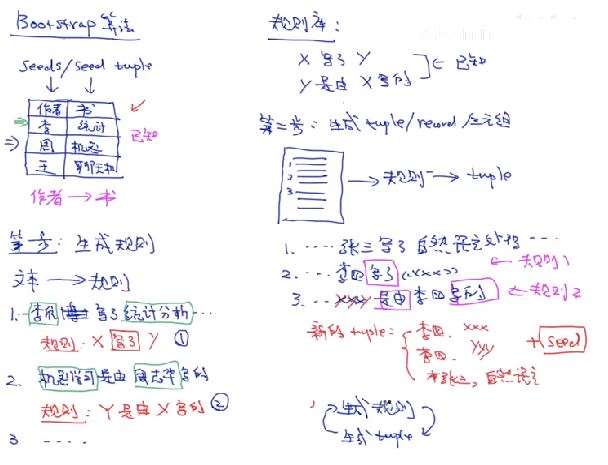 Bootstrap 算法
Seeds/seed tuple
作者 书
李 统计
周 机器
王
已知
作者 → 书
第一步：生成规则
文本 → 规则
1. 写了统计分析 …
规则：X 写了 Y ①
2. 机器学习是由 写的
规则：Y 是由 X 写的 ②
3 ....
规则库：
X 写了 Y
Y 是由 X 写的
已知
第二步：生成 tuple/record/三元组
1
2
3
→ 规则 → tuple
1. .... 张三写了自然语言处理 ....
2. .... 李四写了《xxx》 ← 规则1
3. .... yyy 是由李四写的 ← 规则2
新的 tuple：李四，xxx
李四，yyy + Seed
张三，自然语言
生成规则
生成 tuple